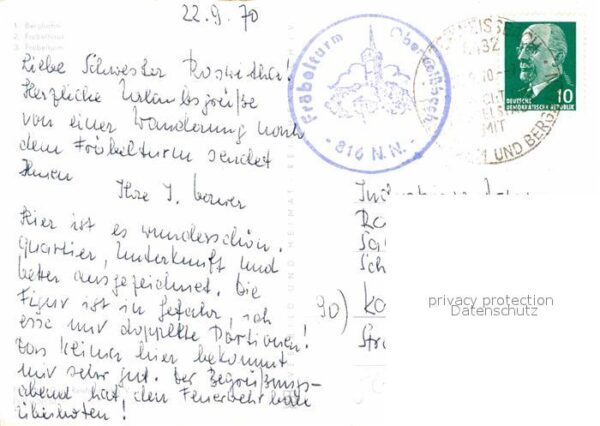 22.9.70
1. Bergbahn
2. Fröbelhaus
3. Fröbelturm
Liebe Schwester Roswitha!
Herzliche Urlaubsgrüße
von einer Wanderung nach
dem Fröbelturm sendet
Ihnen
Ihre I.
Hier ist es wunderschön.
Quartier, Unterkunft und
Wetter ausgezeichnet. Die
Figur ist in Gefahr, ich
esse nur doppelte Portionen!
Das Klima hier bekommt
mir sehr gut. Der Begrüßungs-
abend hat den Feuerwehrball
überboten!
Fröbelturm Oberweißbach
- 816 N.N. -
UND BERG
MIT
DEUTSCHE
DEMOKRATISCHE REPUBLIK
10
90)
privacy protection
Datenschutz